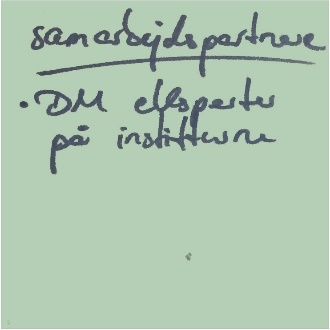 samarbejdspartnere
• DM eksperter
på institutterne